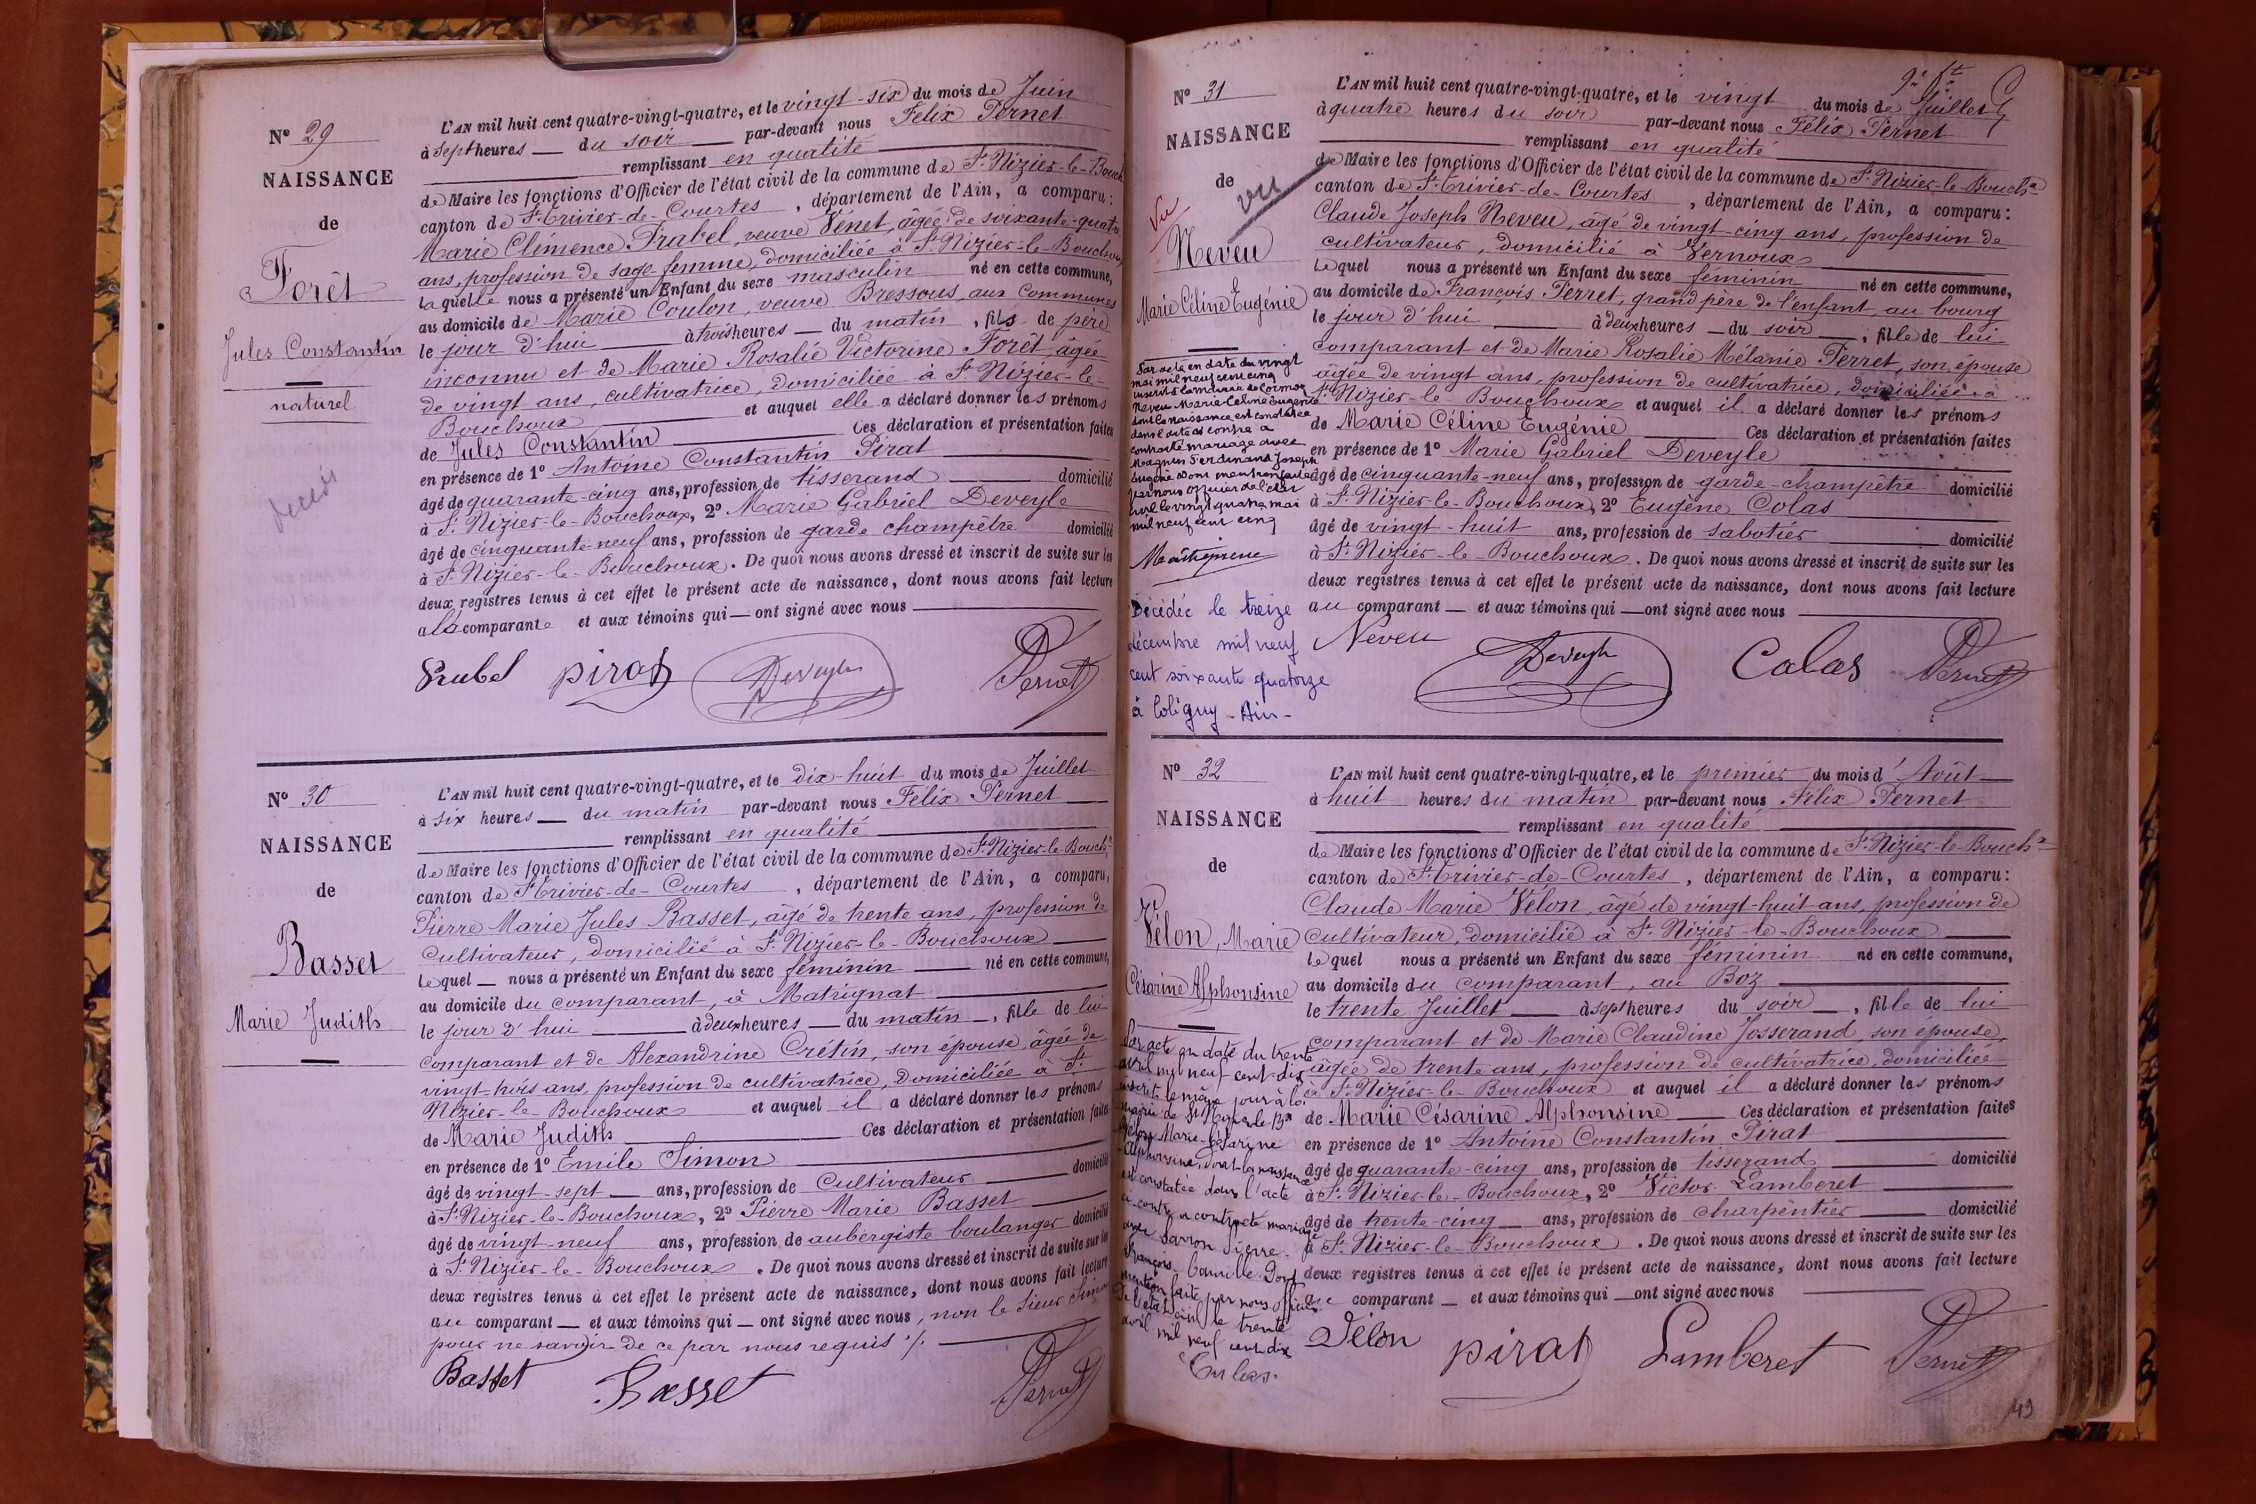 N° 29
NAISSANCE
de
Forêt
Jules Constantin
naturel
décédé
L'AN mil huit cent quatre-vingt-quatre, et le vingt-six du mois de Juin
à sept heures du soir par-devant nous Félix Pernet
remplissant en qualité
de Maire les fonctions d'Officier de l'état civil de la commune de St Nizier-le-Bouch
canton de St Trivier-de-Courtes, département de l'Ain, a comparu:
Marie Clémence Frabel, veuve Vénet, âgée de soixante-quatre
ans, profession de sage-femme, domiciliée à St Nizier-le-Bouchoux
laquelle nous a présenté un Enfant du sexe masculin né en cette commune,
au domicile de Marie Coulon, veuve Bressous, aux Communes
le jour d'hui à trois heures du matin, fils de père
inconnu et de Marie Rosalie Victorine Forêt, âgée
de vingt ans, cultivatrice, domiciliée à St Nizier-le-
Bouchoux et auquel elle a déclaré donner les prénoms
de Jules Constantin Ces déclaration et présentation faites
en présence de 1° Antoine Constantin Pirat
âgé de quarante-cinq ans, profession de tisserand domicilié
à St Nizier-le-Bouchoux, 2° Marie Gabriel Deveyle
âgé de cinquante-neuf ans, profession de garde champêtre domicilié
à St Nizier-le-Bouchoux. De quoi nous avons dressé et inscrit de suite sur les
deux registres tenus à cet effet le présent acte de naissance, dont nous avons fait lecture
a la comparante et aux témoins qui ont signé avec nous
pirat Deveyle Pernet
N° 30
NAISSANCE
de
Basset
Marie Judith
L'AN mil huit cent quatre-vingt-quatre, et le dix-huit du mois de Juillet
à six heures du matin par-devant nous Félix Pernet
remplissant en qualité
de Maire les fonctions d'Officier de l'état civil de la commune de St Nizier-le-Bouchx
canton de St Trivier-de-Courtes, département de l'Ain, a comparu,
Pierre Marie Jules Basset, âgé de trente ans, profession de
cultivateur, domicilié à St Nizier-le-Bouchoux
lequel nous a présenté un Enfant du sexe féminin né en cette commune,
au domicile du comparant, à Matrignat
le jour d'hui à deux heures du matin, fille de lui
comparant et de Alexandrine Crétin, son épouse, âgée de
vingt-trois ans, profession de cultivatrice, domiciliée à St
Nizier-le-Bouchoux et auquel il a déclaré donner les prénoms
de Marie Judith Ces déclaration et présentation faites
en présence de 1° Emile Simon
âgé de vingt-sept ans, profession de Cultivateur domicilié
à St Nizier-le-Bouchoux, 2° Pierre Marie Basset
âgé de vingt-neuf ans, profession de aubergiste boulanger domicilié
à St Nizier-le-Bouchoux. De quoi nous avons dressé et inscrit de suite sur les
deux registres tenus à cet effet le présent acte de naissance, dont nous avons fait lecture
au comparant et aux témoins qui ont signé avec nous, non le sieur Simon
pour ne savoir de ce par nous requis ./.
Basset Basset Pernet
N° 31
NAISSANCE
de
Vu
vu
Neveu
Marie Céline Eugénie
Par acte en date du vingt
mai mil neuf cent cinq
inscrit à la mairie de Cormoz
Neveu Marie Céline Eugénie
dont la naissance est constatée
dans l'acte ci contre a
contracté mariage avec
Magnin Ferdinand Joseph
Eugène Dont mention faite
par nous officier de l'état
civil le vingt quatre mai
mil neuf cent cinq
Décédée le treize
décembre mil neuf
cent soixante quatorze
à Coligny - Ain -
L'AN mil huit cent quatre-vingt-quatre, et le vingt du mois de Juillet
à quatre heures du soir par-devant nous Félix Pernet
remplissant en qualité
de Maire les fonctions d'Officier de l'état civil de la commune de St Nizier-le-Bouchx
canton de St Trivier-de-Courtes, département de l'Ain, a comparu:
Claude Joseph Neveu, âgé de vingt-cinq ans, profession de
cultivateur, domicilié à Vernoux
lequel nous a présenté un Enfant du sexe féminin né en cette commune,
au domicile de François Perret, grand père de l'enfant, au bourg
le jour d'hui à deux heures du soir, fille de lui
comparant et de Marie Rosalie Mélanie Perret, son épouse
âgée de vingt ans, profession de cultivatrice, domiciliée à
St Nizier-le-Bouchoux et auquel il a déclaré donner les prénoms
de Marie Céline Eugénie Ces déclaration et présentation faites
en présence de 1° Marie Gabriel Deveyle
âgé de cinquante-neuf ans, profession de garde-champêtre domicilié
à St Nizier-le-Bouchoux, 2° Eugène Colas
âgé de vingt-huit ans, profession de sabotier domicilié
à St Nizier-le-Bouchoux. De quoi nous avons dressé et inscrit de suite sur les
deux registres tenus à cet effet le présent acte de naissance, dont nous avons fait lecture
au comparant et aux témoins qui ont signé avec nous
Neveu Deveyle Calas Pernet
N° 32
NAISSANCE
de
Vélon, Marie
Césarine Alphonsine
Par acte en date du trente
avril mil neuf cent dix
inscrit le même jour à la
mairie de St Nizier-le-Bx
Vélon Marie-Césarine
Alphonsine, dont la naissance
est constatée dans l'acte
ci-contre a contracté mariage
avec Sarron Pierre-
François-Camille. Dont
mention faite par nous officier
de l'état civil le trente
avril mil neuf cent dix
L'AN mil huit cent quatre-vingt-quatre, et le premier du mois d'Août
à huit heures du matin par-devant nous Félix Pernet
remplissant en qualité
de Maire les fonctions d'Officier de l'état civil de la commune de St Nizier-le-Bouchx
canton de St Trivier-de-Courtes, département de l'Ain, a comparu:
Claude Marie Vélon, âgé de vingt-huit ans, profession de
Cultivateur, domicilié à St Nizier-le-Bouchoux
lequel nous a présenté un Enfant du sexe féminin né en cette commune,
au domicile du comparant, au Boz
le trente Juillet à sept heures du soir, fille de lui
comparant et de Marie Claudine Josserand, son épouse,
âgée de trente ans, profession de cultivatrice, domiciliée
à St Nizier-le-Bouchoux et auquel il a déclaré donner les prénoms
de Marie Césarine Alphonsine Ces déclaration et présentation faites
en présence de 1° Antoine Constantin Pirat
âgé de quarante-cinq ans, profession de tisserand domicilié
à St Nizier-le-Bouchoux, 2° Victor Lamberet
âgé de trente-cinq ans, profession de charpentier domicilié
à St Nizier-le-Bouchoux. De quoi nous avons dressé et inscrit de suite sur les
deux registres tenus à cet effet le présent acte de naissance, dont nous avons fait lecture
au comparant et aux témoins qui ont signé avec nous
Vélon pirat Lamberet Pernet
49